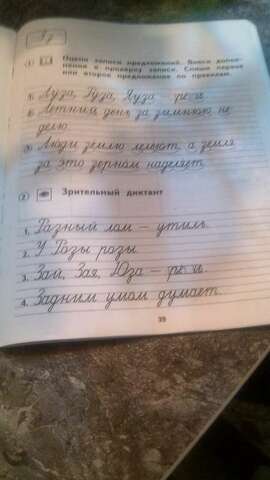 Оцени записи предложений. Внеси допол-
нения и проверку записи. Спиши первое
или второе предложение по правилам.
Луза, Гуза, Яуза – реки.
Летний день за зимнюю не
делю.
Люди землю лелеют, а земля
за это зерном наделяет.
2 Зрительный диктант
1. Разный лом – утиль.
2. У Розы розы.
3. Зай, Зая, Юза – реки.
4. Задним умом думает.
39